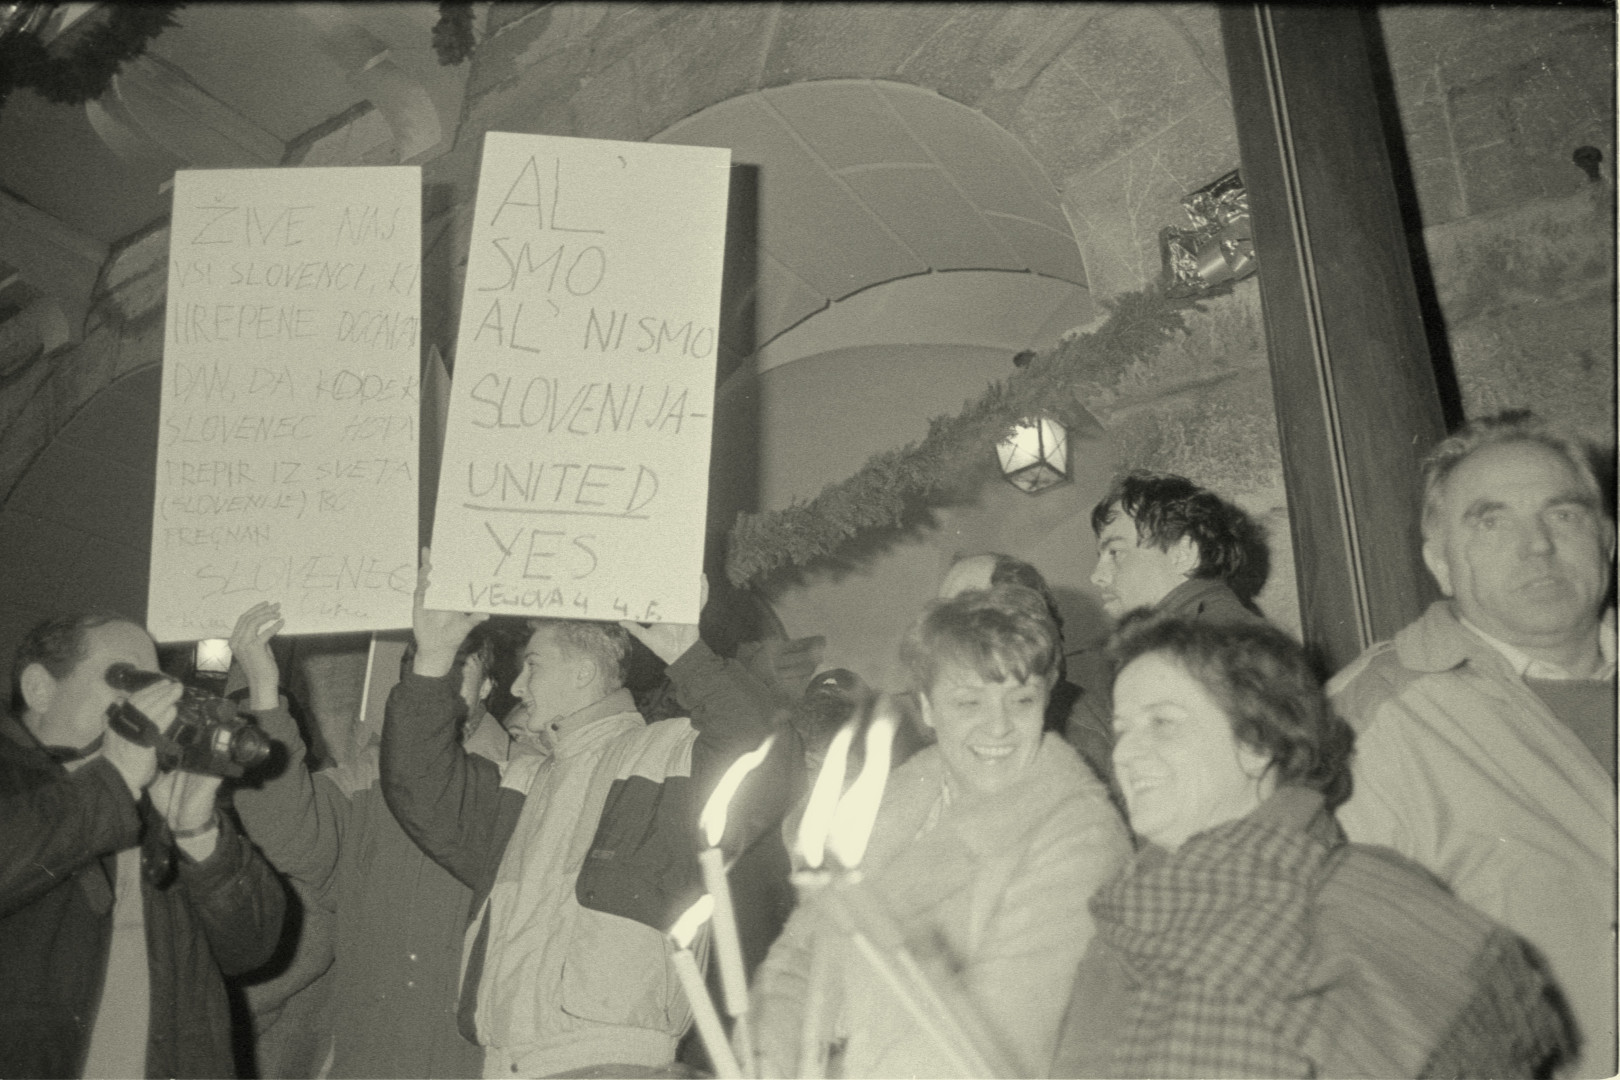 ŽIVE NAJ
VSI SLOVENCI, KI
HREPENE DOČAKAT
DAN, DA KODER
SLOVENEC HODI
PREPIR IZ SVETA
(SLOVENIJE) BO
PREGNAN
SLOVENEC
AL'
SMO
AL' NISMO
SLOVENIJA-
UNITED
YES
VEGOVA 4 4.F.